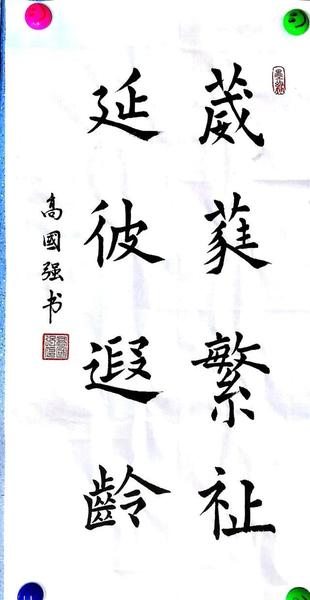 葳蕤繁祉
延彼遐齡
高國强书